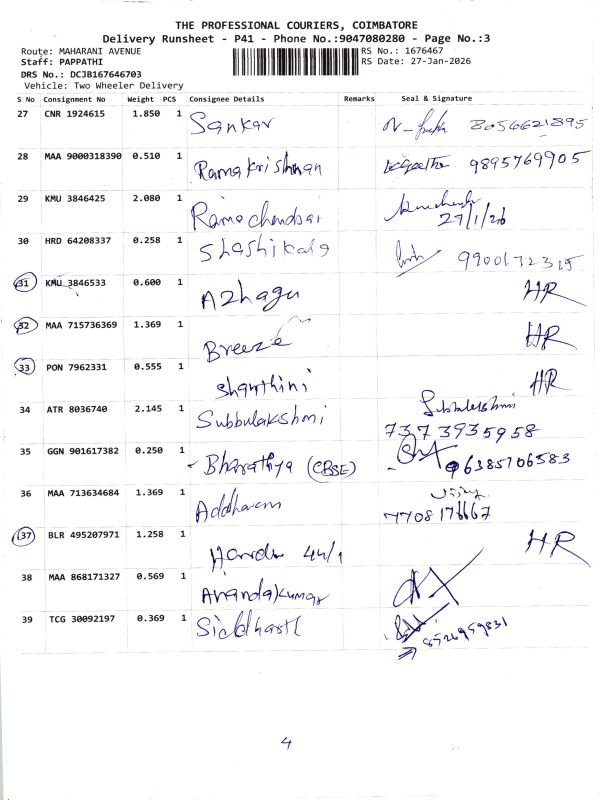 THE PROFESSIONAL COURIERS, COIMBATORE
Delivery Runsheet - P41 - Phone No.:9047080280 - Page No.:3
Route: MAHARANI AVENUE RS No.: 1676467
Staff: PAPPATHI RS Date: 27-Jan-2026
DRS No.: DCJB167646703
Vehicle: Two Wheeler Delivery
S No Consignment No Weight PCS Consignee Details Remarks Seal & Signature
27 CNR 1924615 1.850 1 Sankar 8056621895
28 MAA 9000318390 0.510 1 Ramakrishnan 9895769905
29 KMU 3846425 2.080 1 Ramachandran
27/1/26
30 HRD 64208337 0.258 1 Shashikala 9900172315
31 KMU 3846533 0.600 1 Azhagu HR
32 MAA 715736369 1.369 1 Breeze HR
33 PON 7962331 0.555 1 Shanthini HR
34 ATR 8036740 2.145 1 Subbulakshmi Subbulakshmi
7373935958
35 GGN 901617382 0.250 1 Bharathya (CBSE) 96385706583
36 MAA 713634684 1.369 1
7708176667
37 BLR 495207971 1.258 1 44/1 HR
38 MAA 868171327 0.569 1 Anandakumar
39 TCG 30092197 0.369 1 Siddharth
8526959831
4